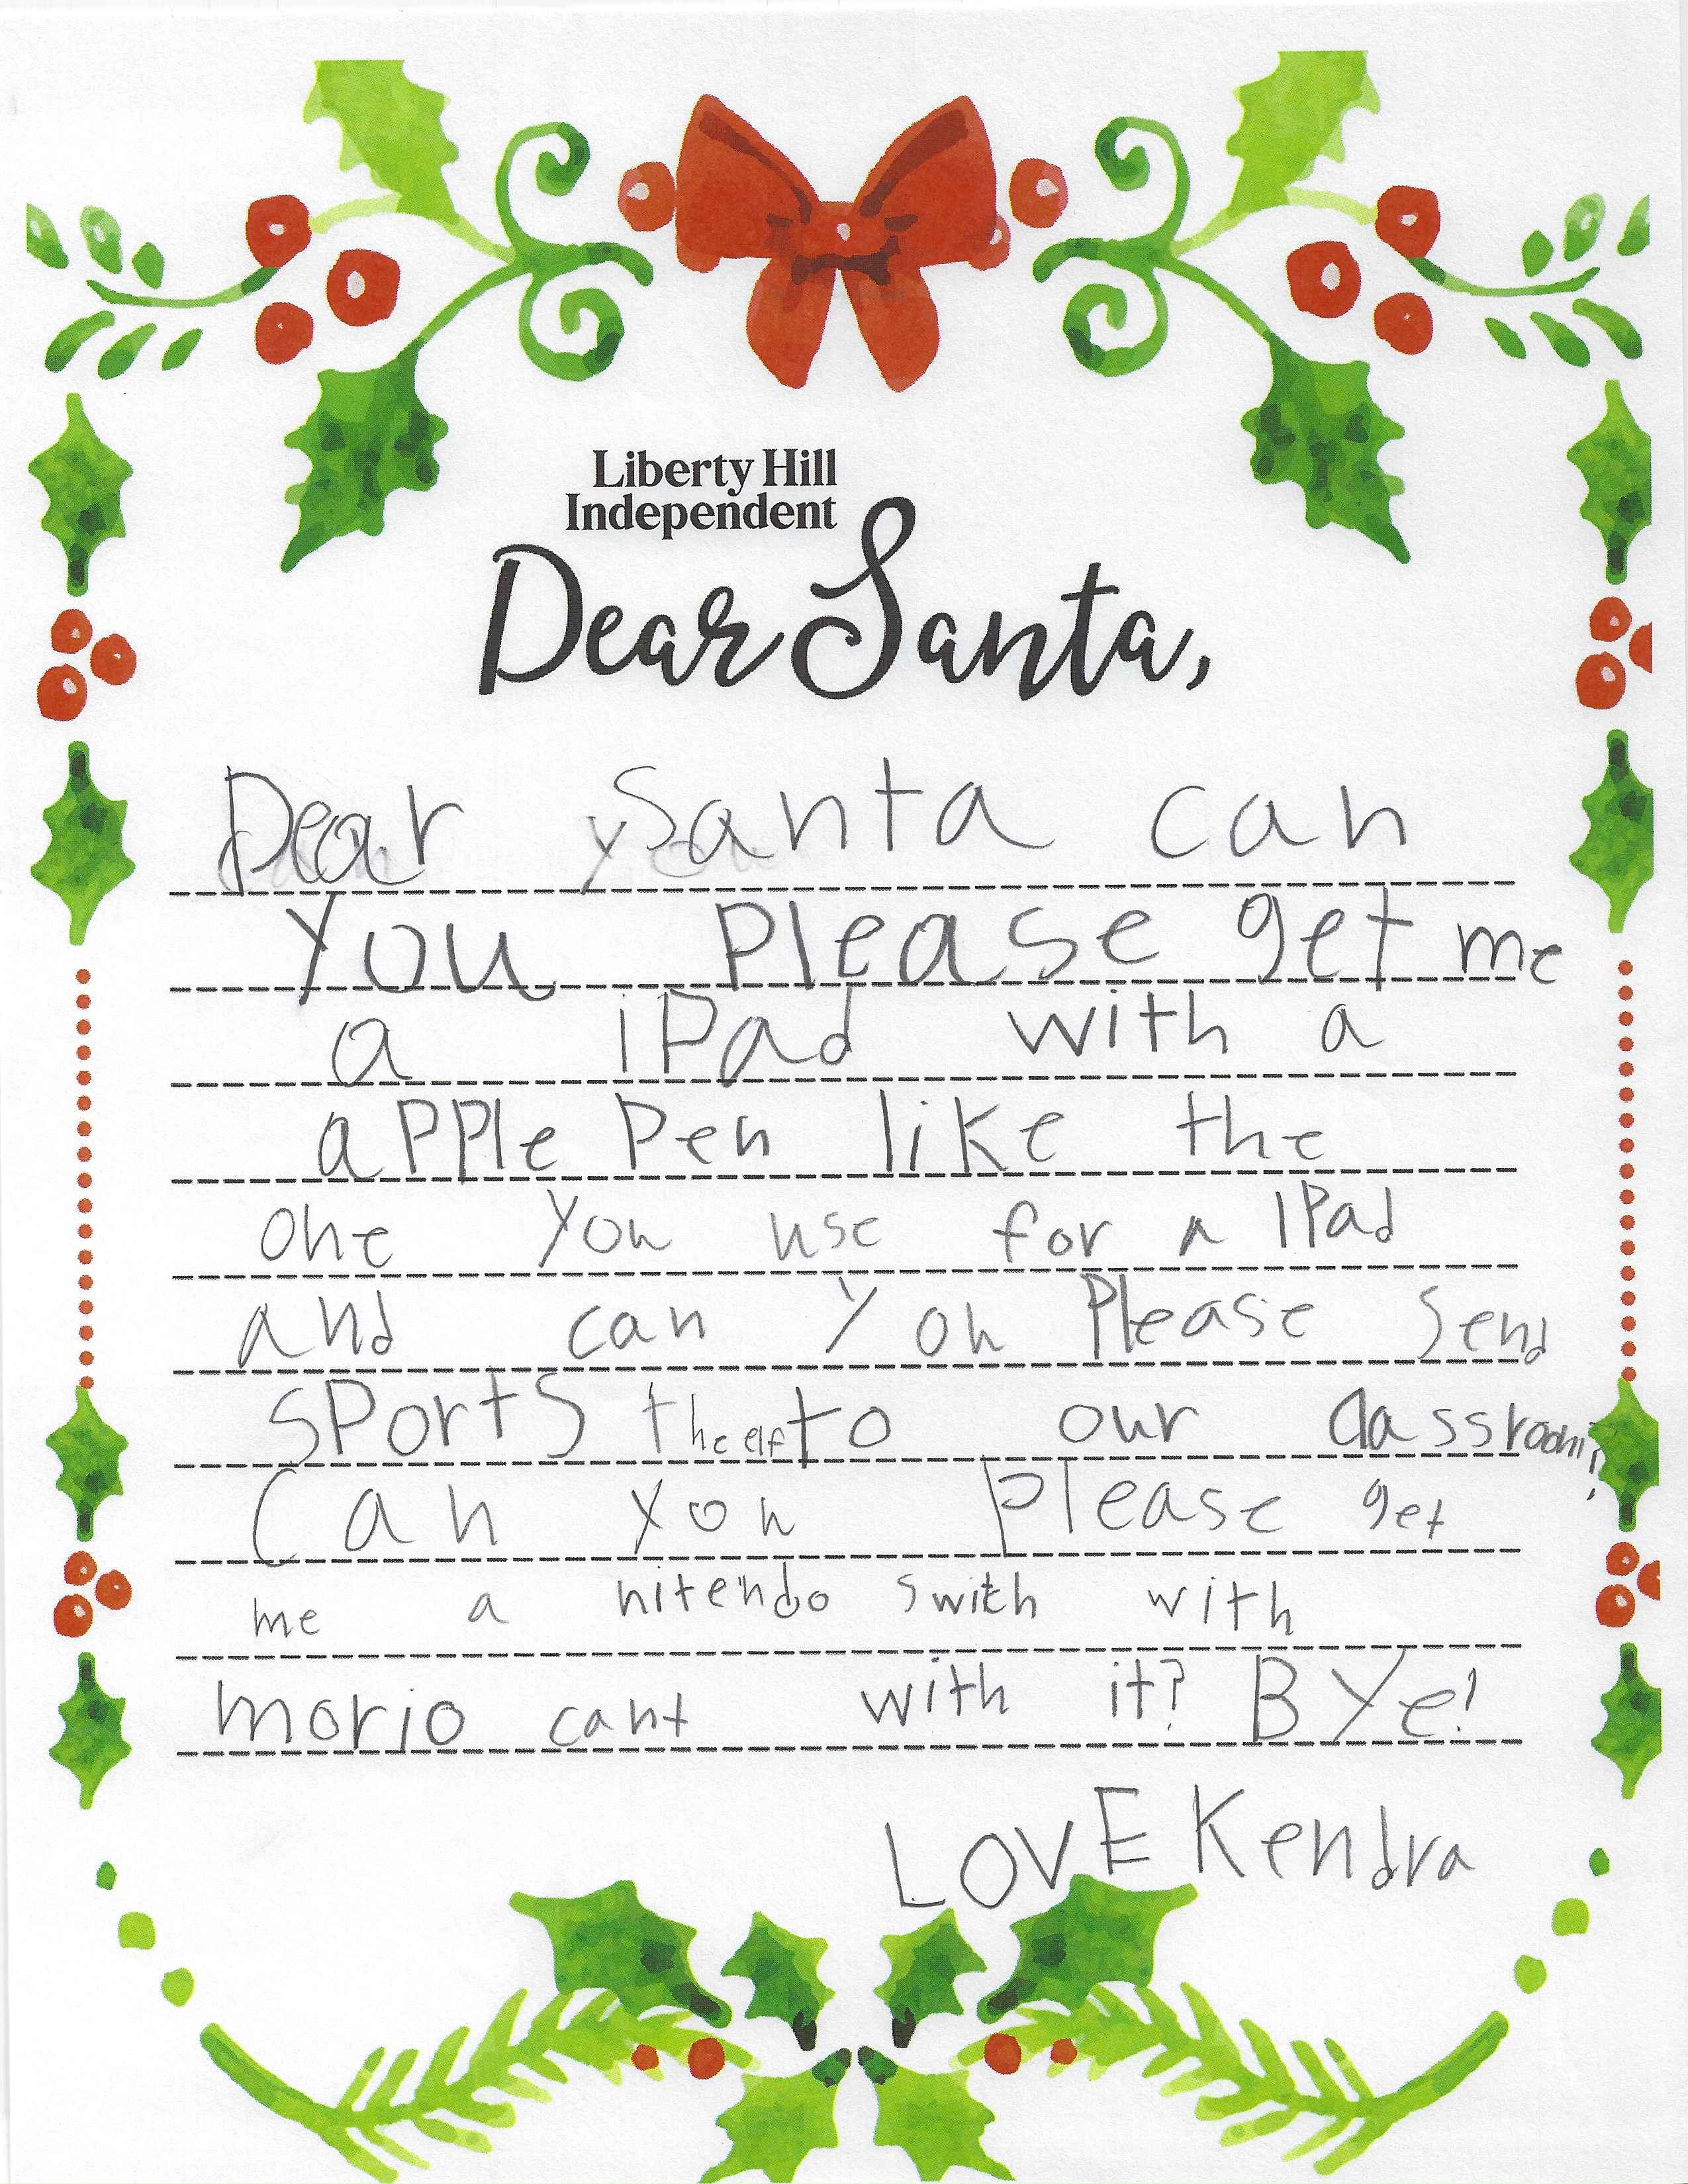 Liberty Hill
Independent
Dear Santa,
Dear Santa can
you please get me
a iPad with a
apple pen like the
one you use for a IPad
and can you please send
sports the elf to our classroom?
Can you please get
me a nitendo swith with
morio cant with it? BYe!
LOVE Kendra